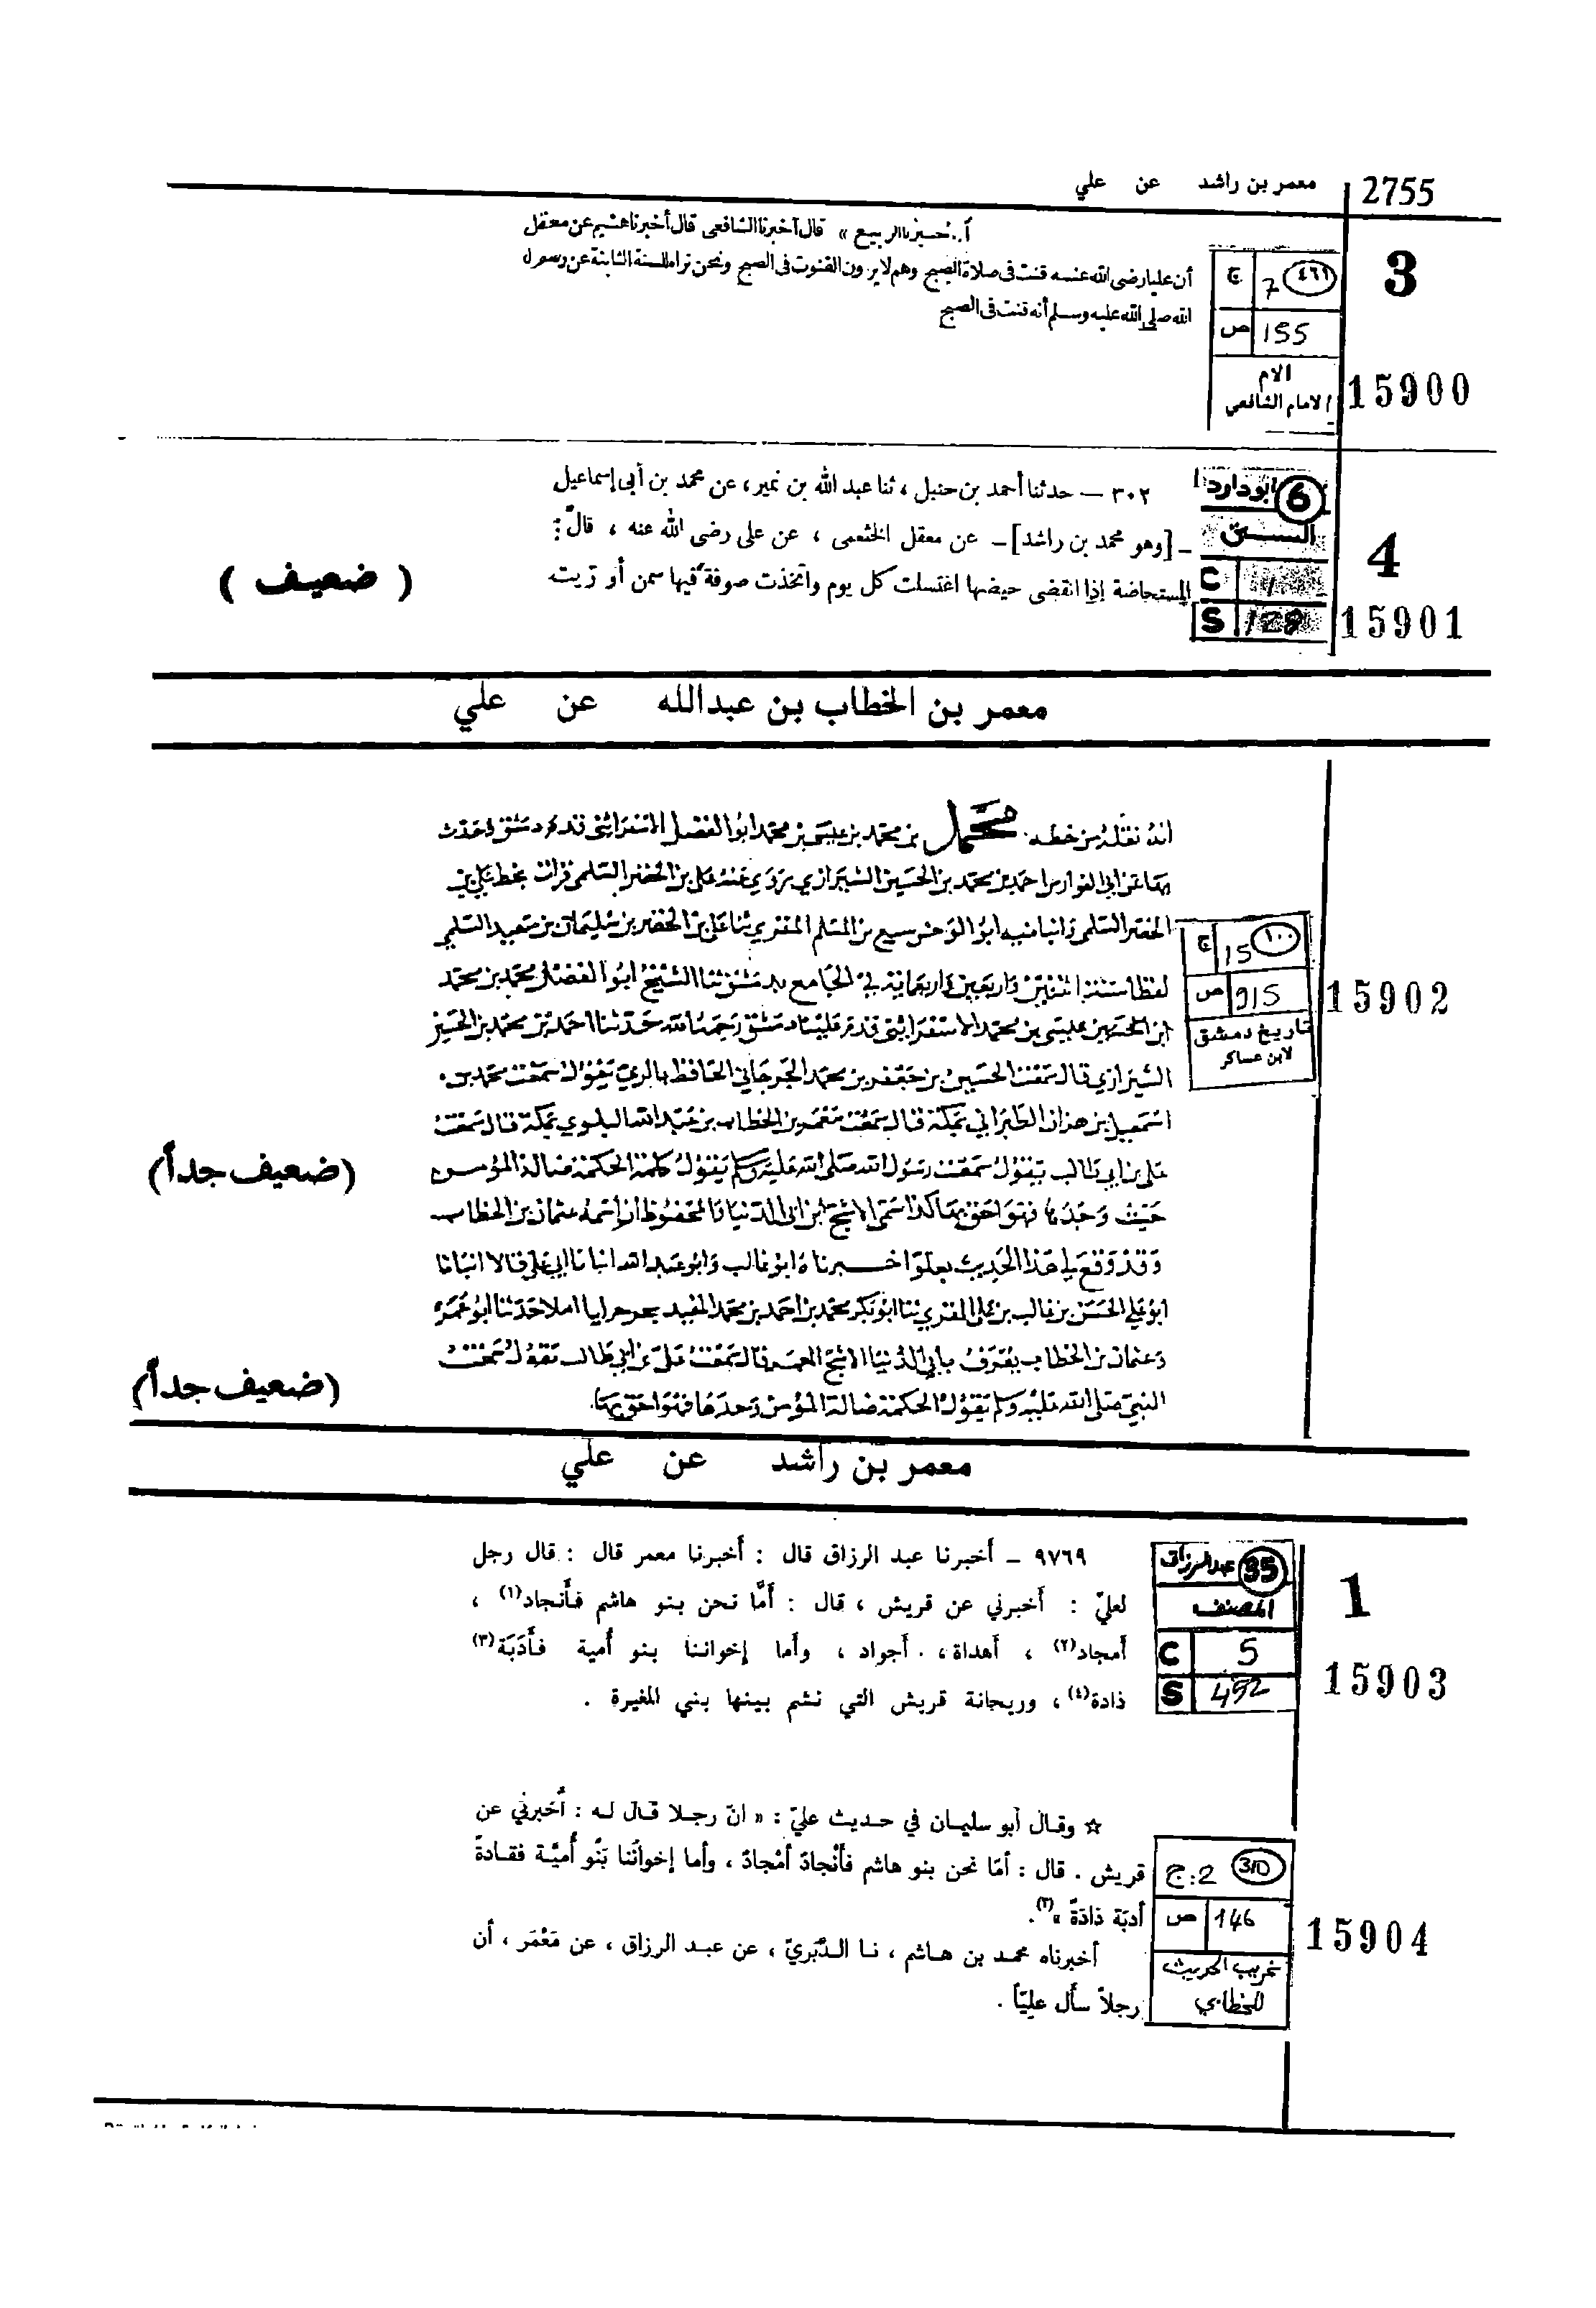 معمر بن راشد عن علي 2755
الربيع» قال أخبرنا الشافعى قال أخبرنا هشيم عن معقل
أن عليا رضى الله عنه قنت فى صلاة الصبح وهم لا يرون القنوت فى الصبح ونحن نراه للسنة الثابتة عن رسول
الله صلى الله عليه وسلم أنه قنت فى الصبح
3
٤٦١ 7 ج
155 ص
الام
الامام الشافعي
15900
٣٠٢ – حدثنا أحمد بن حنبل ، ثنا عبد الله بن نمير، عن محمد بن أبى إسماعيل
– [وهو محمد بن راشد] – عن معقل الخثعمى ، عن على رضى الله عنه ، قال :
المستحاضة إذا انقضى حيضها اغتسلت كل يوم واتخذت صوفة فيها سمن أو زيت
( ضعيف )
6 ابو داود
السنن
C 1
S 128
4
15901
معمر بن الخطاب بن عبدالله عن علي
انه نقله من خطه. محمد بن محمد بن عيسى بن محمد ابو الفضل الاسفرائنى قدم دمشق وحدث
بها عن ابي الفوارس احمد بن محمد بن الحسين الشيرازي روى عنه على بن الخضر السلمى قرات بخط علي بن
الخضر السلمى وانبانيه ابو الوحش سبيع بن المسلم المقرى ثنا على بن الخضر بن سليمان بن سعيد السلمي
لفظا سنة اثنتين واربعين واربعمائة في الجامع بدمشق ثنا الشيخ ابو الفضل محمد بن محمد
ابن الحسين بن عيسى بن محمد الاسفرائنى قدم علينا دمشق رحمه الله حدثنا احمد بن محمد بن الحسين
الشيرازي قال سمعت الحسين بن جعفر بن محمد الجرجاني الحافظ بالري يقول سمعت محمد بن
اسمعيل بن هزان الطبراني بمكة قال سمعت معمر بن الخطاب بن عبد الله البلوي بمكة قال سمعت
على بن ابي طالب يقول سمعت رسول الله صلى الله عليه وسلم يقول كلمة الحكمة ضالة المؤمن
(ضعيف جداً)
حيث وجدها فهو احق بها كذا سمى الاشج ابن ابي الدنيا والمحفوظ ان اسمه عثمان بن الخطاب
وقد وقع لي هذا الحديث بعلو اخبرناه ابو غالب وابو عبد الله انبانا ابي علي قالا انبانا
ابو علي الحسن بن غالب بن على المقرى ثنا ابو بكر محمد بن احمد بن محمد المفيد بجرجرايا املا حدثنا ابو عمرو
وعثمان بن الخطاب يعرف بابي الدنيا الاشج المعمر قال سمعت علي بن ابي طالب يقول سمعت
النبي صلى الله عليه وسلم يقول الحكمة ضالة المؤمن وحدها فهو احق بها.
(ضعيف جداً)
١٠٠ 15 ج
915 ص
تاريخ دمشق
لابن عساكر
15902
معمر بن راشد عن علي
٩٧٦٩ – أخبرنا عبد الرزاق قال : أخبرنا معمر قال : قال رجل
لعليّ : أخبرني عن قريش ، قال : أمَّا نحن بنو هاشم فأَنجاد(١) ،
أمجاد(٢) ، أهداة ، أجواد ، وأما إخواننا بنو أُمية فأَدَبَة(٣)
ذادة(٤) ، وريحانة قريش التي نشم بينها بني المغيرة .
35 عبد الرزاق
المصنف
C 5
S 452
1
15903
☆ وقال أبو سليمان في حديث عليّ : « انّ رجلا قال له : أخبرني عن
قريش . قال : أمّا نحن بنو هاشم فأنْجادٌ أمْجادٌ ، وأما إخوانُنا بَنُو أُميَّة فقادةٌ
أدبَة ذادَةٌ »(٣).
أخبرناه محمد بن هاشم ، نا الدَّبَريّ ، عن عبد الرزاق ، عن مَعْمَر ، أن
رجلاً سأل عليّاً .
310 2 ج
146 ص
غريب الحديث
للخطابي
15904